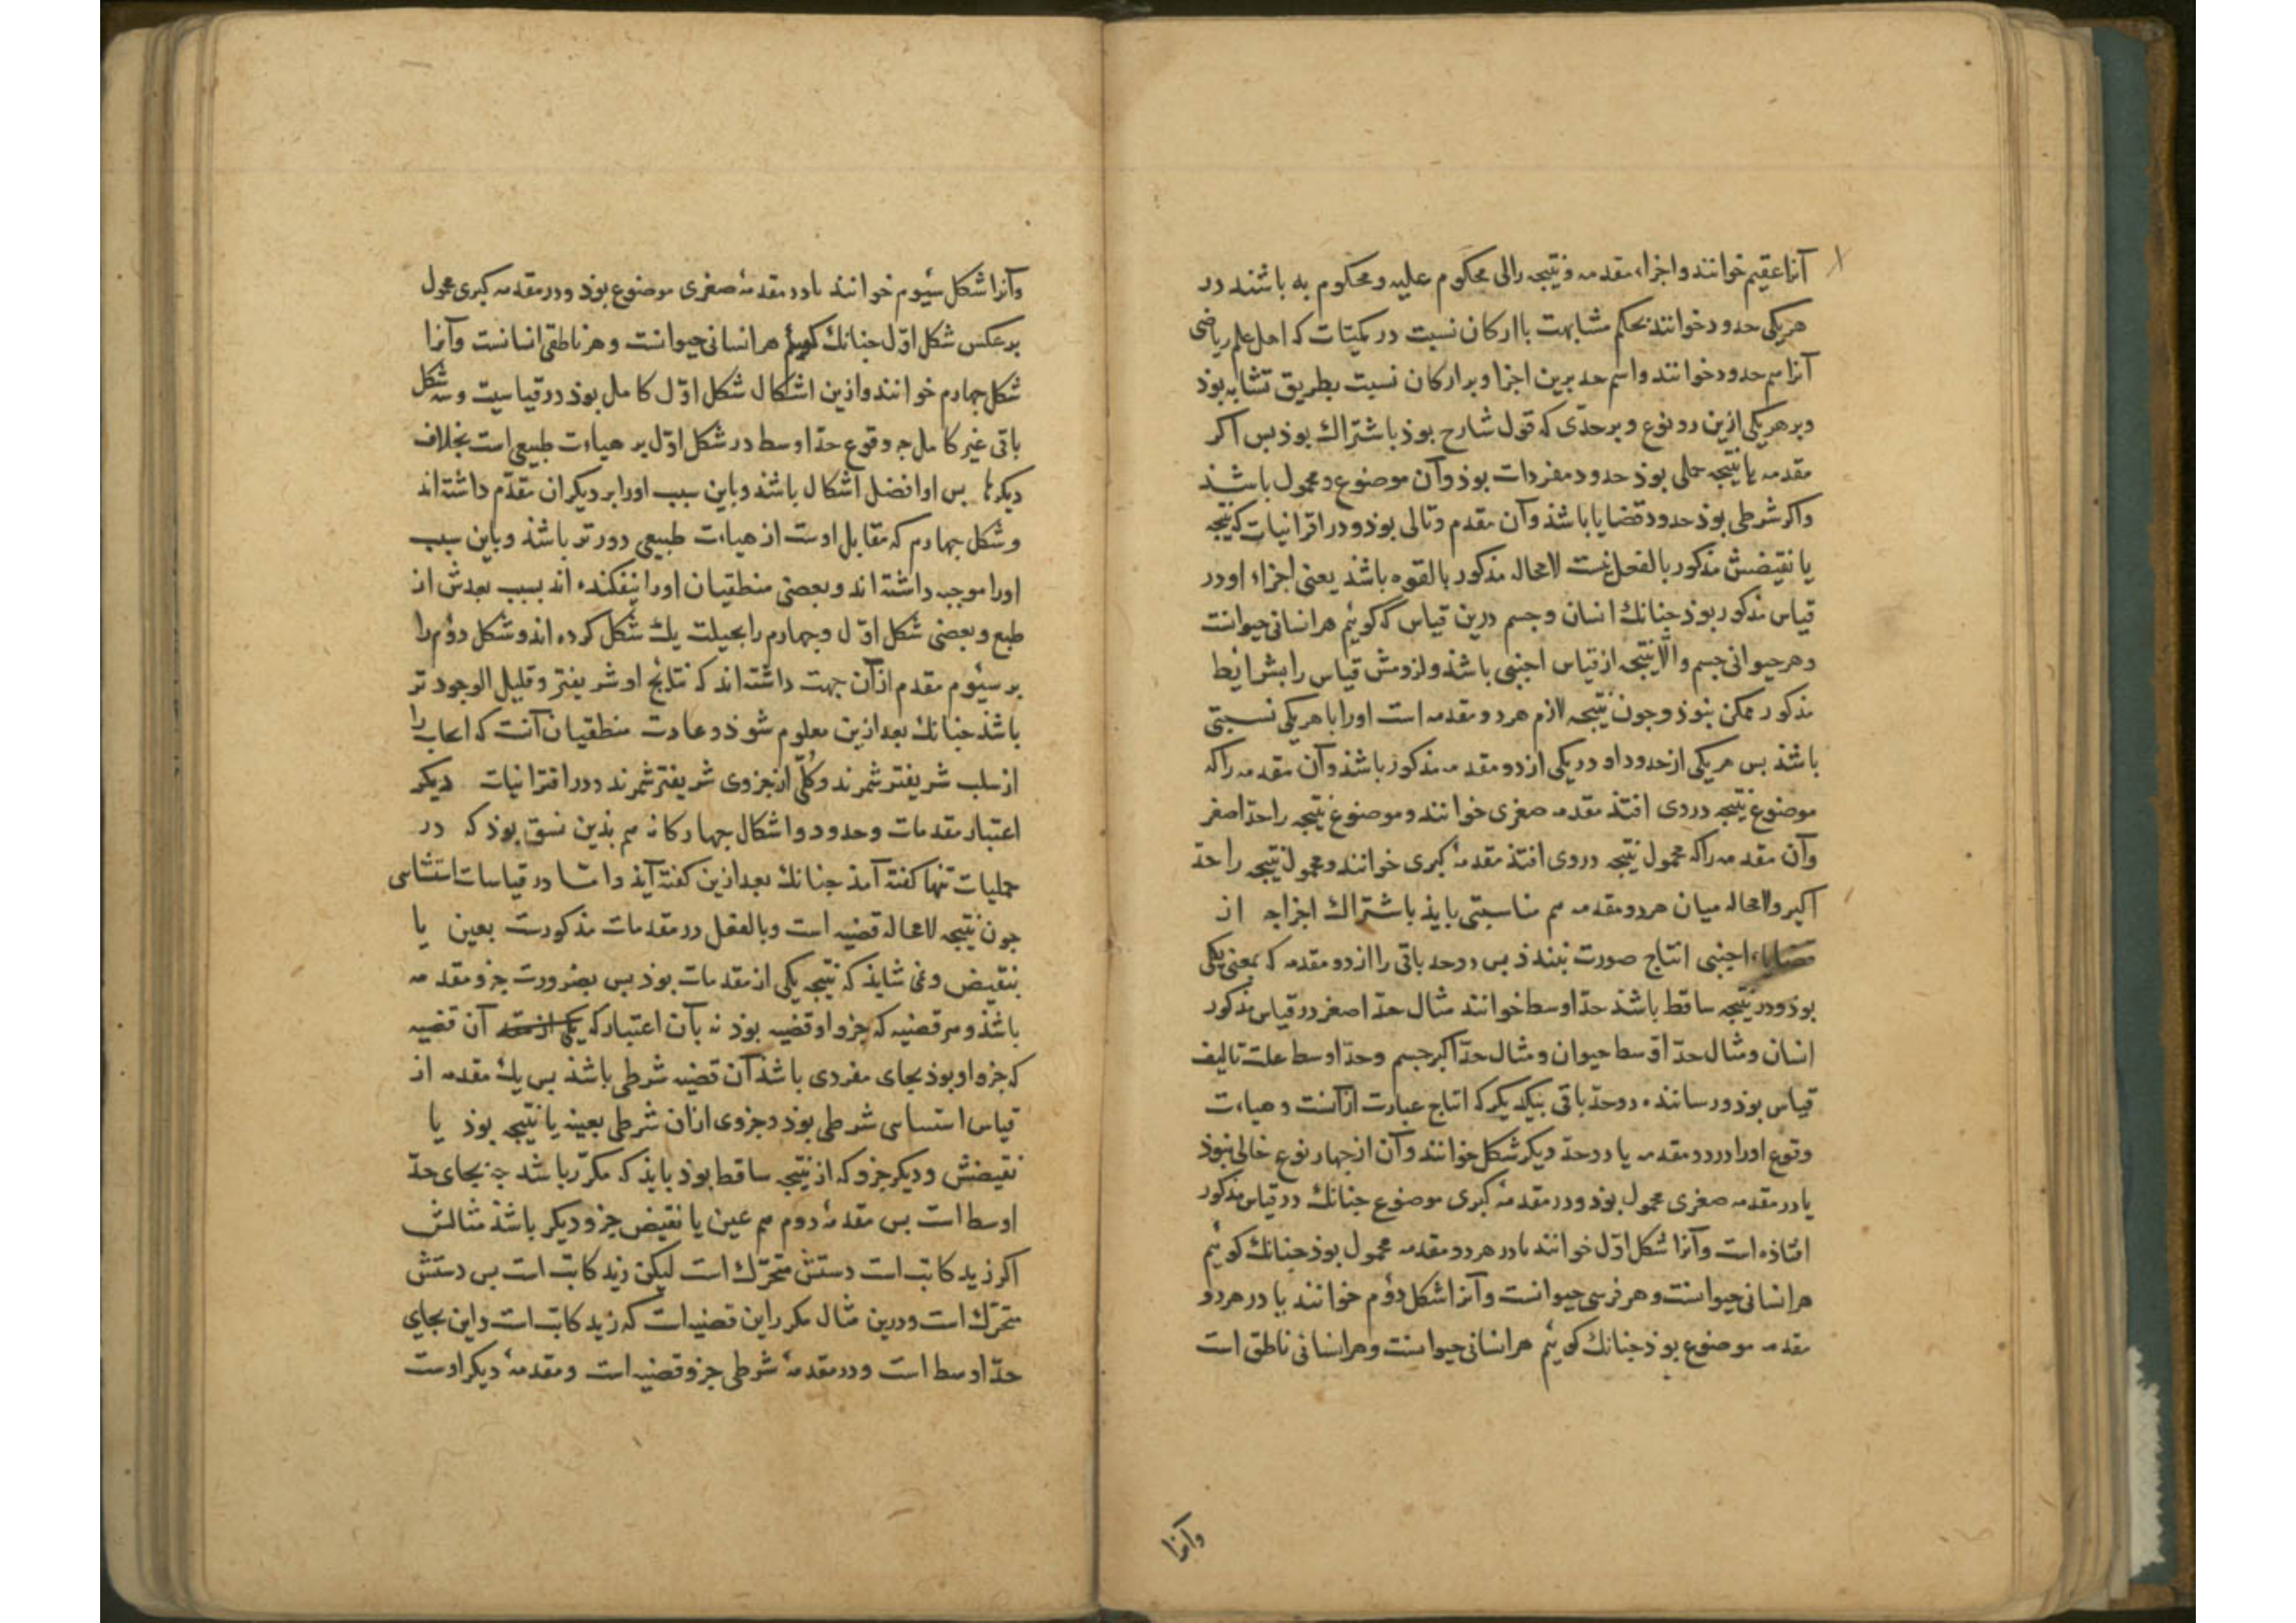 آنرا عقیم خوانند و اجزاء مقدمه و نتیجه را الی محکوم علیه و محکوم به باشند در
هر یکی حدود خوانند بحکم مشابهت با ارکان نسبت در کمیّات که اهل علم ریاضی
آنرا هم حدود خوانند و اسم حد برین اجزا و بر ارکان نسبت بطریق تشابه بوذ
و بر هر یکی ازین دو نوع و بر حدّی که قول شارح بوذ باشتراك بوذ بس اکر
مقدمه یا نتیجه حملی بوذ حدود مفردات بوذ و آن موضوع و محمول باشند
و اکر شرطی بوذ حدود قضایا باشذ و آن مقدم و تالی بوذ و در اقترانیات که نتیجه
یا نقیضش مذکور بالفعل نیست لامحاله مذکور بالقوه باشذ یعنی اجزاء او در
قیاس مذکور بوذ جنانك انسان و جسم درین قیاس که کوئیم هر انسانی حیوانست
و هر حیوانی جسم و الّا نتیجه از قیاس اجنبی باشذ و لزومش قیاس را بشرائط
مذکور ممکن نبوذ و جون نتیجه لازم هر دو مقدمه است او را با هر یکی نسبتی
باشذ بس هر یکی از حدود او در یکی از دو مقدمه مذکور باشذ و آن مقدمه را که
موضوع نتیجه در وی افتذ مقدمه صغری خوانند و موضوع نتیجه را حدّ اصغر
و آن مقدمه را که محمول نتیجه در وی افتذ مقدمهٔ کبری خوانند و محمول نتیجه را حدّ
اکبر و لامحاله میان هر دو مقدمه هم مناسبتی بایذ باشتراك اجزا جه از
قضایاء اجنبی انتاج صورت نبندذ بس دو حد باقی را از دو مقدمه که بمعنی یکی
بوذ و در نتیجه ساقط باشذ حدّ اوسط خوانند مثال حدّ اصغر در قیاس مذکور
انسان و مثال حدّ اوسط حیوان و مثال حدّ اکبر جسم و حدّ اوسط علت تالیف
قیاس بوذ و رسانندهٔ دو حدّ باقی بیکدیکر که انتاج عبارت از آنست و هیات
وقوع او را در دو مقدمه با دو حدّ دیکر شکل خوانند و آن از جهار نوع خالی نبوذ
یا در مقدمه صغری محمول بوذ و در مقدمهٔ کبری موضوع جنانك در قیاس مذکور
افتاذه است و آنرا شکل اوّل خوانند یا در هر دو مقدمه محمول بوذ جنانك کوئیم
هر انسانی حیوانست و هر فرسی حیوانست و آنرا شکل دوّم خوانند یا در هر دو
مقدمه موضوع بوذ جنانك کوئیم هر انسانی حیوانست و هر انسانی ناطق است
و آنرا
و آنرا شکل سیوم خوانند یا در مقدمهٔ صغری موضوع بوذ و در مقدمه کبری محمول
بر عکس شکل اوّل جنانك کوئیم هر انسانی حیوانست و هر ناطقی انسانست و آنرا
شکل جهارم خوانند و ازین اشکال شکل اوّل کامل بوذ در قیاسیت و سه شکل
باقی غیر کامل جه وقوع حدّ اوسط در شکل اوّل بر هیات طبیعی است بخلاف
دیکرها بس او افضل اشکال باشذ و باین سبب او را بر دیکران مقدّم داشته اند
و شکل جهارم که مقابل اوست از هیات طبیعی دورتر باشذ و باین سبب
او را موجب داشته اند و بعضی منطقیان او را بیفکنده اند بسبب بعدش از
طبع و بعضی شکل اوّل و جهارم را بحیلت یك شکل کرده اند و شکل دوّم را
بر سئوم مقدم از آن جهت داشته اند که نتایج او شریفتر و قلیل الوجود تر
باشذ جنانك بعد ازین معلوم شوذ و عادت منطقیان آنست که ایجاب را
از سلب شریفتر شمرند و کُلّی از جزوی شریفتر شمرند و در اقترانیات دیکر
اعتبار مقدمات و حدود و اشکال جهارکانه هم بذین نسق بوذ که در
حملیات تنها کفته آمذ جنانك بعد ازین کفته آیذ و امّا در قیاسات استثنائی
جون نتیجه لامحاله قضیه است و بالفعل در مقدمات مذکورست بعین یا
بنقیض و نمی شایذ که نتیجه یکی از مقدمات بوذ بس بضرورت جزو مقدمه
باشذ و هر قضیه که جزو او قضیه بوذ نه بآن اعتبار که آن قضیه
که جزو او بوذ بجای مفردی باشذ آن قضیه شرطی باشذ بس یك مقدمه از
قیاس استثنائی شرطی بوذ و جزوی از آن شرطی بعینه یا نتیجه بوذ یا
نقیضش و دیکر جزو که از نتیجه ساقط بوذ بایذ که مکرّر باشد جه بجای حدّ
اوسط است بس مقدمهٔ دوم هم عین یا نقیض جزو دیکر باشذ مثالش
اکر زید کاتب است دستش متحرّك است لیکن زید کاتب است بس دستش
متحرّك است و درین مثال مکرر این قضیه است که زید کاتب است و این بجای
حدّ اوسط است و در مقدمهٔ شرطی جزو قضیه است و مقدمهٔ دیکر اوست